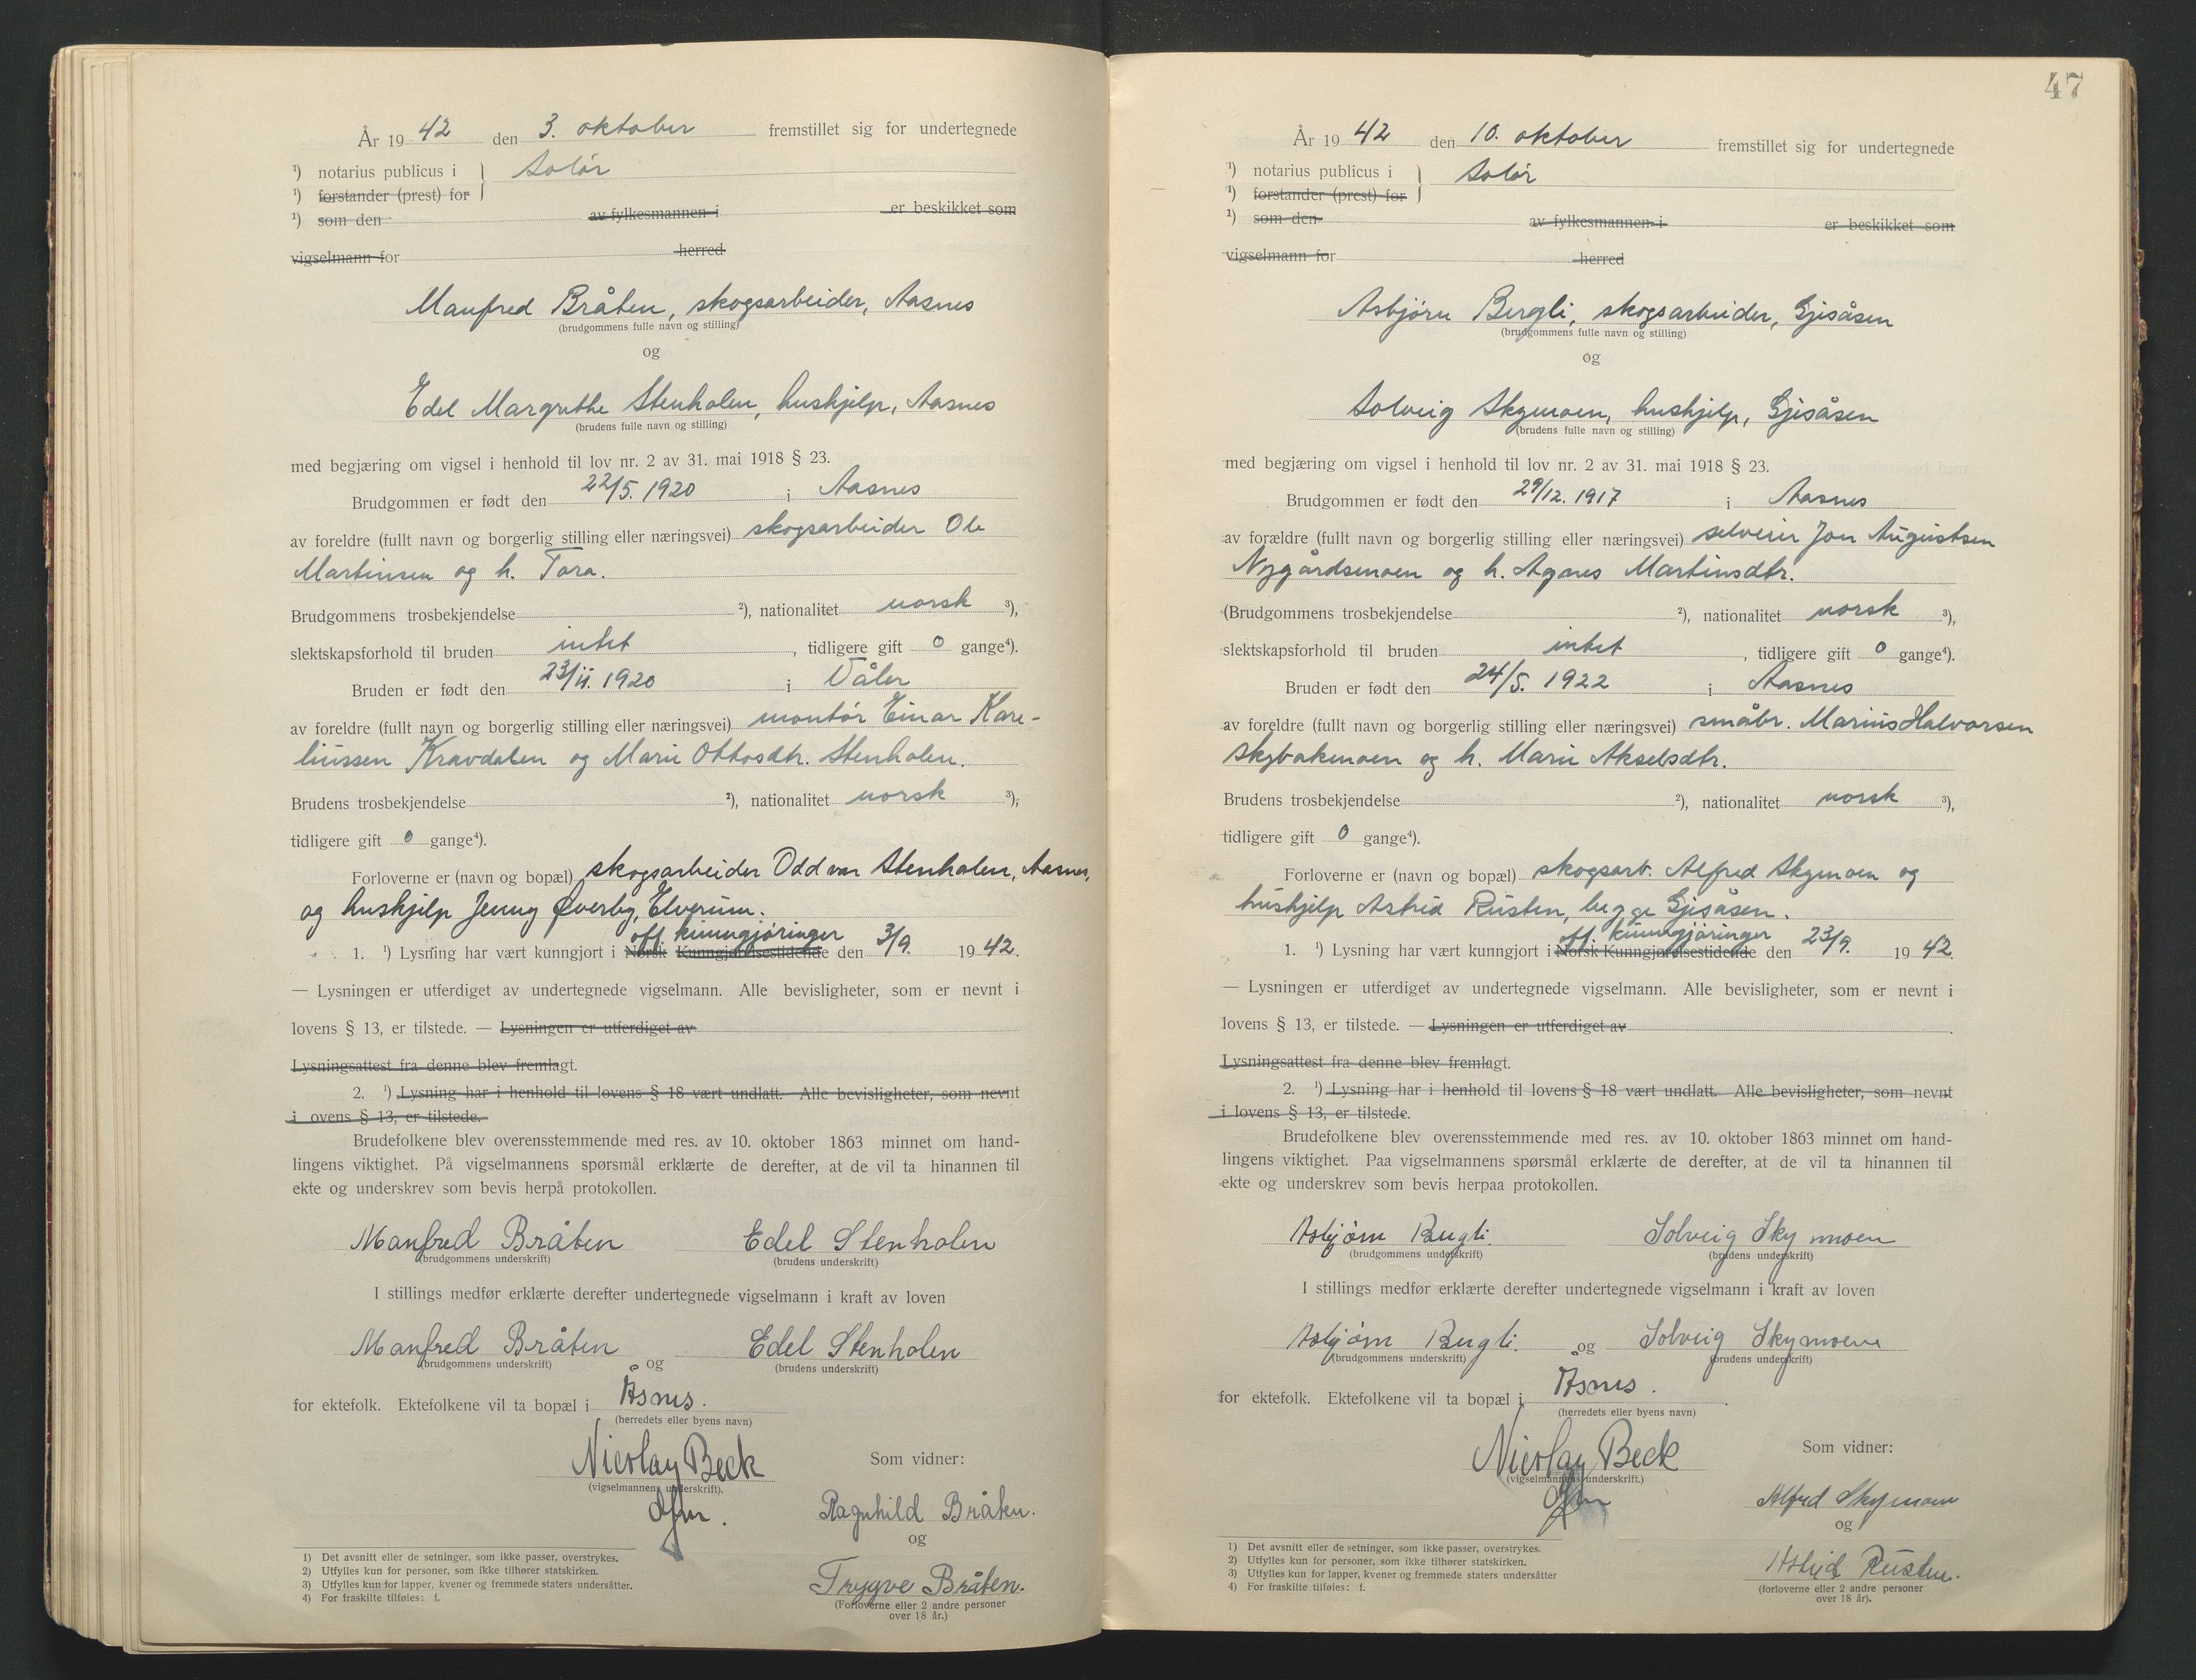 År 19 42 den 3. oktober fremstillet sig for undertegnede
¹) notarius publicus i } Solør
¹) forstander (prest) for
¹) som den av fylkesmannen i er beskikket som
vigselmann for herred
Manfred Bråten, skogsarbeider, Aasnes
(brudgommens fulle navn og stilling)
og
Edel Margrethe Stenholen, hushjelp, Aasnes
(brudens fulle navn og stilling)
med begjæring om vigsel i henhold til lov nr. 2 av 31. mai 1918 § 23.
Brudgommen er født den 22/5. 1920 i Aasnes
av foreldre (fullt navn og borgerlig stilling eller næringsvei) skogsarbeider Ole
Martinsen og h. Tora.
Brudgommens trosbekjendelse ²), nationalitet norsk ³),
slektskapsforhold til bruden intet, tidligere gift 0 gange⁴).
Bruden er født den 23/11. 1920 i Våler
av foreldre (fullt navn og borgerlig stilling eller næringsvei) montør Einar Kare-
liussen Kravdalen og Marie Ottosdtr. Stenholen.
Brudens trosbekjendelse ²), nationalitet norsk ³),
tidligere gift 0 gange⁴).
Forloverne er (navn og bopæl) skogsarbeider Oddvar Stenholen, Aasnes,
og hushjelp Jenny Øverby, Elverum.
off. kunngjøringer
1. ¹) Lysning har vært kunngjort i Norsk Kunngjørelsestidende den 3/9. 19 42.
— Lysningen er utferdiget av undertegnede vigselmann. Alle bevisligheter, som er nevnt i
lovens § 13, er tilstede. — Lysningen er utferdiget av
Lysningsattest fra denne blev fremlagt.
2. ¹) Lysning har i henhold til lovens § 18 vært undlatt. Alle bevisligheter, som nevnt
i ovens § 13, er tilstede.
Brudefolkene blev overensstemmende med res. av 10. oktober 1863 minnet om hand-
lingens viktighet. På vigselmannens spørsmål erklærte de derefter, at de vil ta hinannen til
ekte og underskrev som bevis herpå protokollen.
Manfred Bråten Edel Stenholen
(brudgommens underskrift) (brudens underskrift)
I stillings medfør erklærte derefter undertegnede vigselmann i kraft av loven
Manfred Bråten og Edel Stenholen
(brudgommens underskrift) (brudens underskrift)
for ektefolk. Ektefolkene vil ta bopæl i Åsnes.
(herredets eller byens navn)
Nicolay Beck Som vidner:
(vigselmannens underskrift).
Ragnhild Bråten.
og
Trygve Bråten.
(Forloverne eller 2 andre personer
over 18 år.)
1) Det avsnitt eller de setninger, som ikke passer, overstrykes.
2) Utfylles kun for personer, som ikke tilhører statskirken.
3) Utfylles kun for lapper, kvener og fremmede staters undersåtter.
4) For fraskilte tilføies: f.
47
År 19 42 den 10. oktober fremstillet sig for undertegnede
¹) notarius publicus i } Solør
¹) forstander (prest) for
¹) som den av fylkesmannen i er beskikket som
vigselmann for herred
Asbjørn Bergli, skogsarbeider, Gjesåsen
(brudgommens fulle navn og stilling)
og
Solveig Skymoen, hushjelp, Gjesåsen
(brudens fulle navn og stilling)
med begjæring om vigsel i henhold til lov nr. 2 av 31. mai 1918 § 23.
Brudgommen er født den 29/12. 1917 i Aasnes
av forældre (fullt navn og borgerlig stilling eller næringsvei) selveier Jon Augustsen
Nygårdsmoen og h. Agnes Martinsdtr.
(Brudgommens trosbekjendelse ²), nationalitet norsk ³),
slektskapsforhold til bruden intet, tidligere gift 0 gange⁴).
Bruden er født den 24/5. 1922 i Aasnes
av foreldre (fullt navn og borgerlig stilling eller næringsvei) småbr. Marius Halvorsen
Skybakmoen og h. Marie Akselsdtr.
Brudens trosbekjendelse ²), nationalitet norsk ³),
tidligere gift 0 gange⁴).
Forloverne er (navn og bopæl) skogsarb. Alfred Skymoen og
hushjelp Astrid Rusten, begge Gjesåsen.
off. kunngjøringer
1. ¹) Lysning har vært kunngjort i Norsk Kunngjørelsestidende den 23/9. 19 42.
— Lysningen er utferdiget av undertegnede vigselmann. Alle bevisligheter, som er nevnt i
lovens § 13, er tilstede. — Lysningen er utferdiget av
Lysningsattest fra denne blev fremlagt.
2. ¹) Lysning har i henhold til lovens § 18 vært undlatt. Alle bevisligheter, som nevnt
i lovens § 13, er tilstede.
Brudefolkene blev overensstemmende med res. av 10. oktober 1863 minnet om hand-
lingens viktighet. Paa vigselmannens spørsmål erklærte de derefter, at de vil ta hinannen til
ekte og underskrev som bevis herpaa protokollen.
Asbjørn Bergli. Solveig Skymoen
(brudgommens underskrift) (brudens underskrift)
I stillings medfør erklærte derefter undertegnede vigselmann i kraft av loven
Asbjørn Bergli. og Solveig Skymoen
(brudgommens underskrift) (brudens underskrift)
for ektefolk. Ektefolkene vil ta bopæl i Åsnes.
(herredets eller byens navn)
Nicolay Beck Som vidner:
(vigselmannens underskrift.)
Alfred Skymoen
og
Astrid Rusten.
(forloverne eller 2 andre personer
over 18 år).
1) Det avsnitt eller de setninger, som ikke passer, overstrykes.
2) Utfylles kun for personer, som ikke tilhører statskirken.
3) Utfylles kun for lapper, kvener og fremmede staters undersåtter
4) For fraskilte tilføies: f.